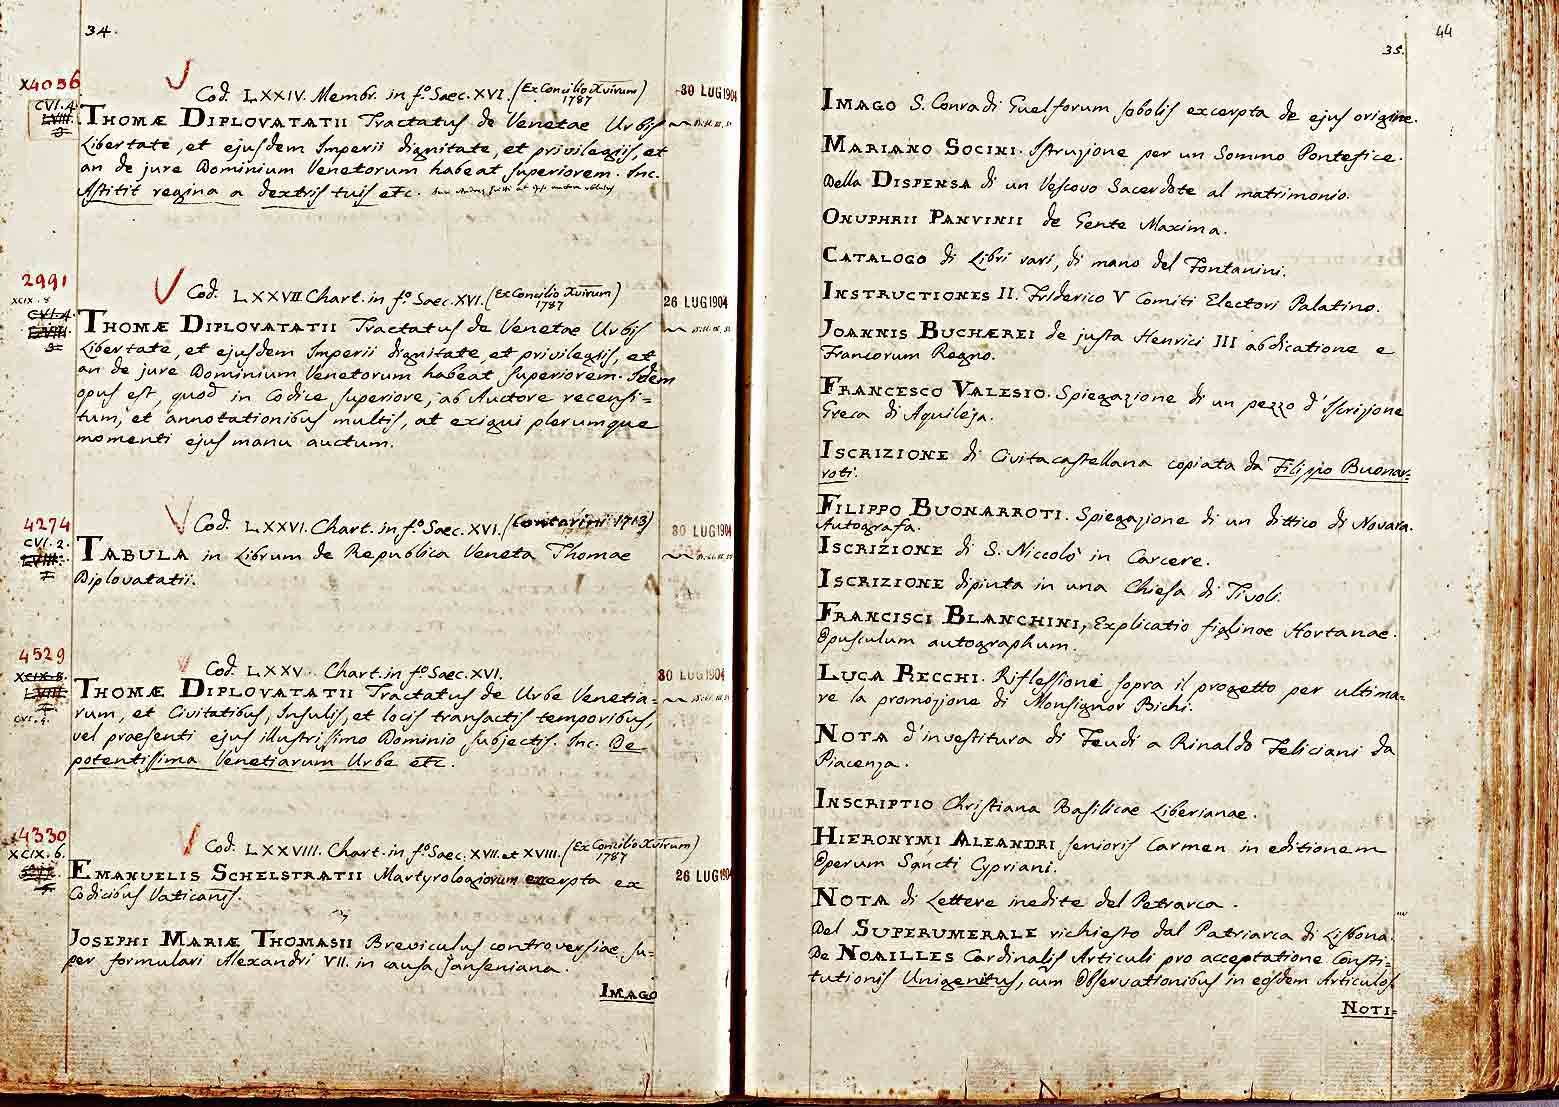 34.
X4056
Cod. LXXIV. Membr. in f.º Saec. XVI. (Ex Concilio Xvirum) 1787
30 LUG 1904
CVI. 4.
THOMÆ DIPLOVATATII Tractatus de Venetae Urbis
Libertate, et ejusdem Imperii dignitate, et privilegiis, et
an de jure Dominium Venetorum habeat superiorem. Inc.
Astitit regina a dextris tuis etc.
2991
Cod. LXXVII Chart. in f.º Saec. XVI. (Ex Concilio Xvirum) 1787
26 LUG 1904
XCIX. 8
CVI. 4.
THOMÆ DIPLOVATATII Tractatus de Venetae Urbis
Libertate, et ejusdem Imperii dignitate, et privilegiis, et
an de jure Dominium Venetorum habeat superiorem. Idem
opus est, quod in Codice superiore, ab Auctore recensi=
tum, et annotationibus multis, at exigui plerumque
momenti ejus manu auctum.
4274
Cod. LXXVI. Chart. in f.º Saec. XVI. (Contarini 1713)
30 LUG 1904
CVI. 2.
TABULA in Librum de Republica Veneta Thomae
Diplovatatii.
4529
Cod. LXXV. Chart. in f.º Saec. XVI.
30 LUG 1904
XCIX. 8.
LVIII.
THOMÆ DIPLOVATATII Tractatus de Urbe Venetia=
rum, et Civitatibus, Insulis, et locis transactis temporibus,
vel praesenti ejus illustrissimo Dominio subjectis. Inc. De
potentissima Venetiarum Urbe etc.
4330
Cod. LXXVIII. Chart. in f.º Saec. XVII. et XVIII. (Ex Concilio Xvirum) 1787
26 LUG 1904
XCIX. 6.
EMANUELIS SCHELSTRATII Martyrologiorum excerpta ex
Codicibus Vaticanis.
JOSEPHI MARIÆ THOMASII Breviculus controversiae su=
per formulari Alexandri VII. in causa Janseniana.
IMAGO
44
35.
IMAGO S. Conradi Guelforum sobolis excerpta de ejus origine.
MARIANO SOCINI. Istruzione per un Sommo Pontefice.
Della DISPENSA di un Vescovo Sacerdote al matrimonio.
ONUPHRII PANVINII de Gente Maxima.
CATALOGO di Libri vari, di mano del Fontanini.
INSTRUCTIONES II. Friderico V Comiti Electori Palatino.
JOANNIS BUCHÆREI de justa Henrici III abdicatione e
Francorum Regno.
FRANCESCO VALESIO. Spiegazione di un pezzo d'Iscrizione
Greca di Aquileja.
ISCRIZIONE di Civitacastellana copiata da Filippo Buonar=
roti.
FILIPPO BUONARROTI. Spiegazione di un dittico di Novara.
Autografa.
ISCRIZIONE di S. Niccolò in Carcere.
ISCRIZIONE dipinta in una Chiesa di Tivoli.
FRANCISCI BLANCHINI, Explicatio figlinae Hortanae.
Opusculum autographum.
LUCA RECCHI. Riflessione sopra il progetto per ultima=
re la promozione di Monsignor Bichi.
NOTA d'investitura di Feudi a Rinaldo Feliciani da
Piacenza.
INSCRIPTIO Christiana Basilicae Liberianae.
HIERONYMI ALEANDRI senioris Carmen in editionem
Operum Sancti Cypriani.
NOTA di Lettere inedite del Petrarca.
Del SUPERUMERALE richiesto dal Patriarca di Lisbona.
De NOAILLES Cardinalis Articuli pro acceptatione Consti=
tutionis Unigenitus, cum Observationibus in eosdem Articulos
NOTI=